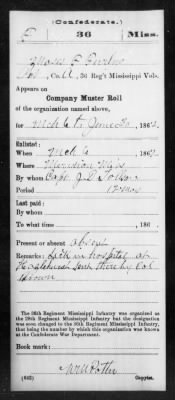 (Confederate.)
36 Miss.
Moses
36 Reg't Mississippi Vols.
Appears on
Company Muster Roll
of the organization named above,
for Mch 6 to June 30, 186
Enlisted:
When Mch 6, 186
Where Meridian Miss
By whom Capt. J. D.
Period 12 mos
Last paid:
By whom
To what time , 186 .
Present or absent absent
Remarks: Sick in hospital at
by Col
Brown
The 36th Regiment Mississippi Infantry was organized as
the 28th Regiment Mississippi Infantry but the designation
was soon changed to the 36th Regiment Mississippi Infantry,
that being the number by which this organization was known
at the Confederate War Department.
Book mark:
(642) Copyist.